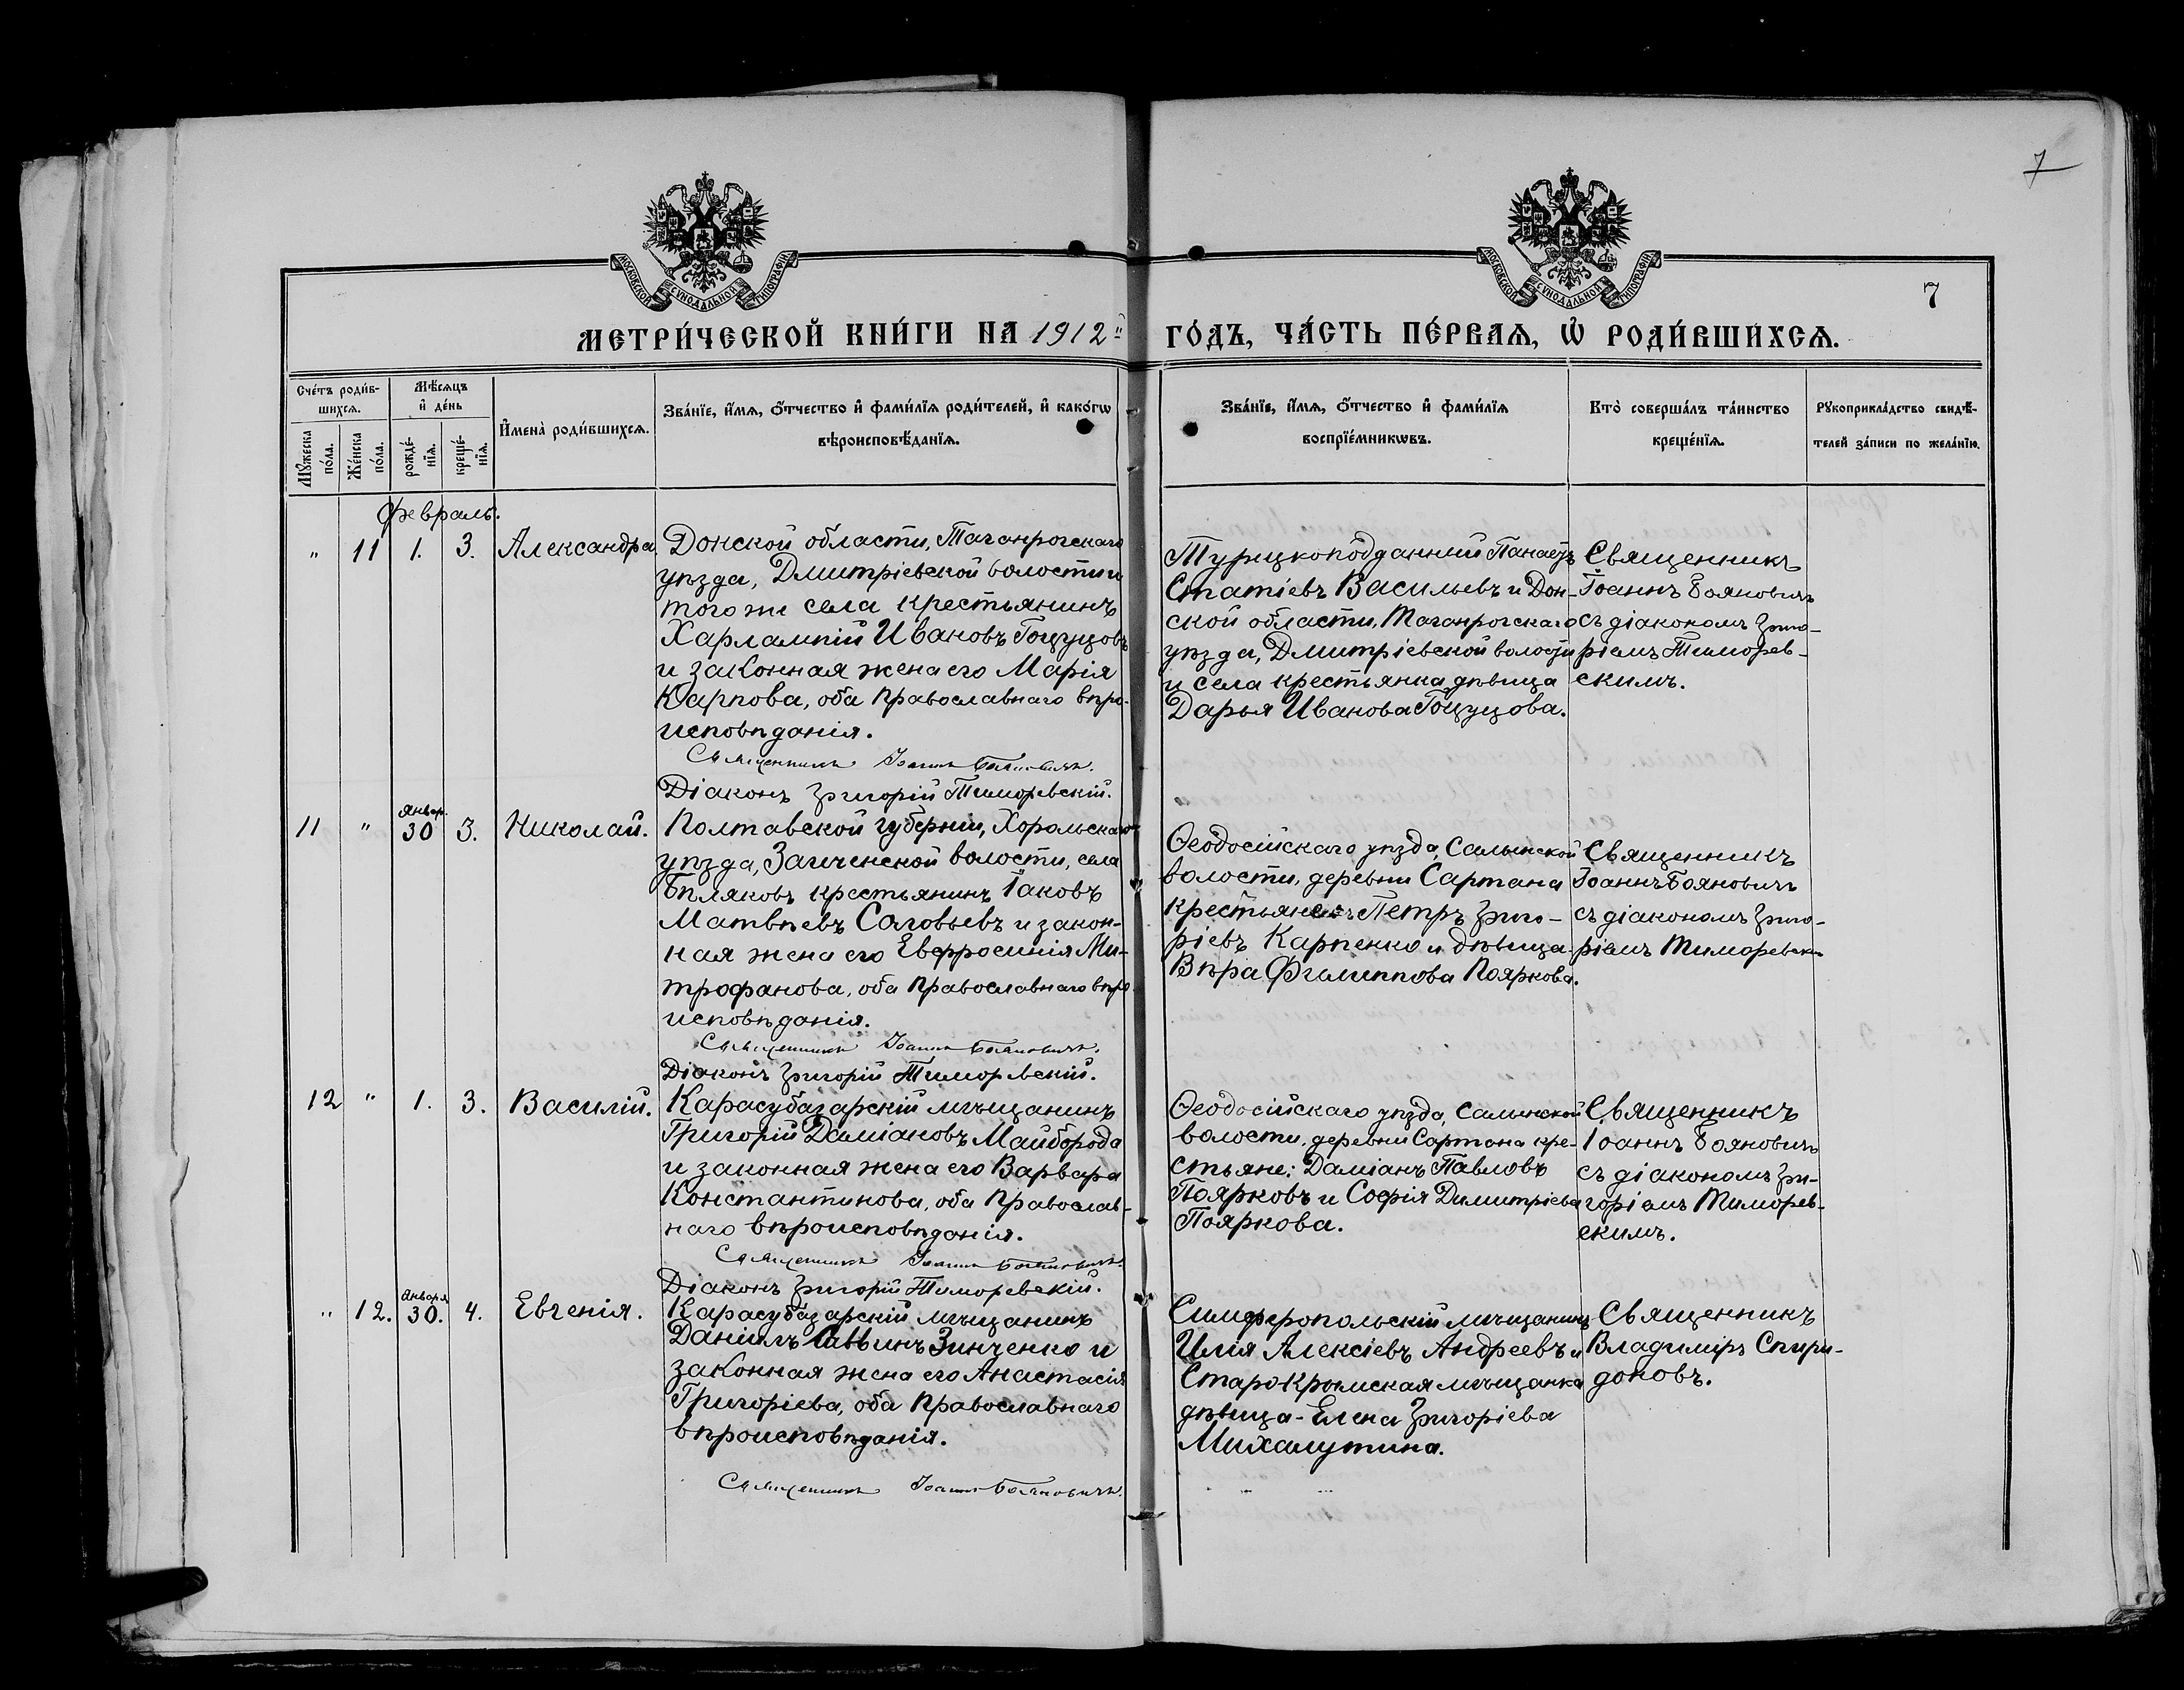 7
МОСКОВСКОЙ СѴНОДАЛЬНОЙ ТИПОГРАФІИ
МОСКОВСКОЙ СѴНОДАЛЬНОЙ ТИПОГРАФІИ
7
МЕТРИ́ЧЕСКОЙ КНИ́ГИ НА 1912 й
ГО́ДЪ, ЧА́СТЬ ПЕ́РВАѦ, Ѡ РОДИ́ВШИХСѦ.
Сче́тъ роди́в-
шихсѧ.
Мѣ́сѧцъ
и҆ де́нь
Мꙋ́жеска по́ла.
Же́нска по́ла.
рожде́-нїѧ.
креще́-нїѧ.
И҆мена̀ роди́вшихсѧ.
Зва́нїе, и҆́мѧ, ѻ҆́тчество и҆ фами́лїѧ роди́телей, и҆ како́гѡ
вѣроисповѣ́данїѧ.
Зва́нїе, и҆́мѧ, ѻ҆́тчество и҆ фами́лїѧ
воспрїе́мникѡвъ.
Кто̀ соверша́лъ та́инство
креще́нїѧ.
Рꙋкоприкла́дство свидѣ́-
телей за́писи по жела́нїю.
Февраль.
" 11 1. 3. Александра
Донской области, Таганрогскаго
уѣзда, Дмитріевской волости и
того же села крестьянинъ
Харлампій Ивановъ Гоцуцовъ
и законная жена его Марія
Карпова, оба Православнаго вѣро-
исповѣданія.
Священникъ Іоаннъ Бояновичъ.
Діаконъ Григорій Тиморевскій.
Турецкоподданный Панаетъ
Статіевъ Васильевъ и Дон-
ской области, Таганрогскаго
уѣзда, Дмитріевской волости
и села крестьянка дѣвица
Дарья Иванова Гоцуцова.
Священникъ
Іоаннъ Бояновичъ
съ діакономъ Григо-
ріемъ Тиморев-
скимъ.
11 " Январ. 30 3. Николай.
Полтавской губерніи, Хорольскаго
уѣзда, Заиченской волости, села
Бѣляковъ крестьянинъ Іаковъ
Матвѣевъ Соловьевъ и закон-
ная жена его Евфросинія Ми-
трофанова, оба Православнаго вѣро-
исповѣданія.
Священникъ Іоаннъ Бояновичъ.
Діаконъ Григорій Тиморевскій.
Ѳеодосійскаго уѣзда, Салынской
волости, деревни Сартана
крестьянинъ Петръ Григо-
ріевъ Карпенко и дѣвица
Вѣра Филиппова Пояркова.
Священникъ
Іоаннъ Бояновичъ
съ діакономъ Григо-
ріемъ Тиморевским
12 " 1. 3. Василій.
Карасубазарскій мѣщанинъ
Григорій Даміановъ Майборода
и законная жена его Варвара
Константинова, оба Православ-
наго вѣроисповѣданія.
Священникъ Іоаннъ Бояновичъ.
Діаконъ Григорій Тиморевскій.
Ѳеодосійскаго уѣзда, Салынской
волости, деревни Сартана кре-
стьяне: Даміанъ Павловъ
Поярковъ и Софія Димитріева
Пояркова.
Священникъ
Іоаннъ Бояновичъ
съ діакономъ Гри-
горіемъ Тиморев-
скимъ.
" 12. Января 30. 4. Евгенія.
Карасубазарскій мѣщанинъ
Даніилъ Саввинъ Зинченко и
законная жена его Анастасія
Григоріева, оба Православнаго
вѣроисповѣданія.
Священникъ Іоаннъ Бояновичъ.
Симферопольскій мѣщанинъ
Илія Алексіевъ Андреевъ и
Старокрымская мѣщанка
дѣвица - Елена Григоріева
Михалутина.
Священникъ
Владиміръ Спири-
доновъ.